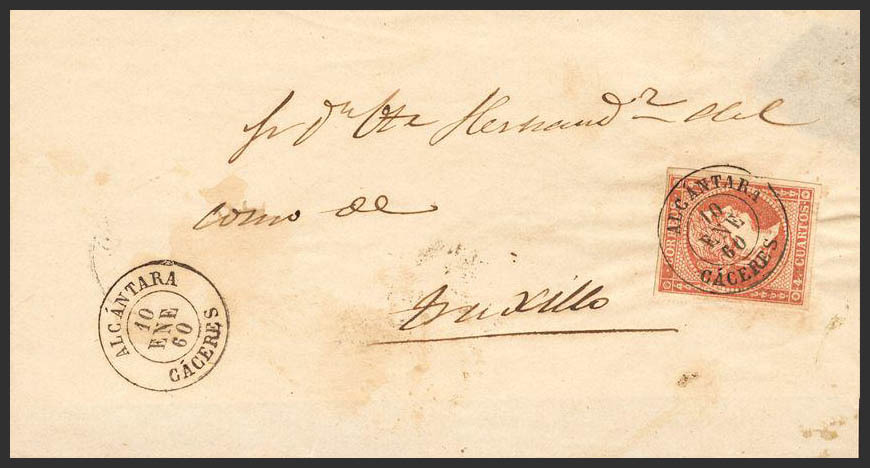 Sr Dn Vta Hernandz del
como de
truxillo
ALCÁNTARA
10
ENE
60
CÁCERES
ALCÁNTARA
10
ENE
60
CÁCERES
POR
4 CUARTOS.